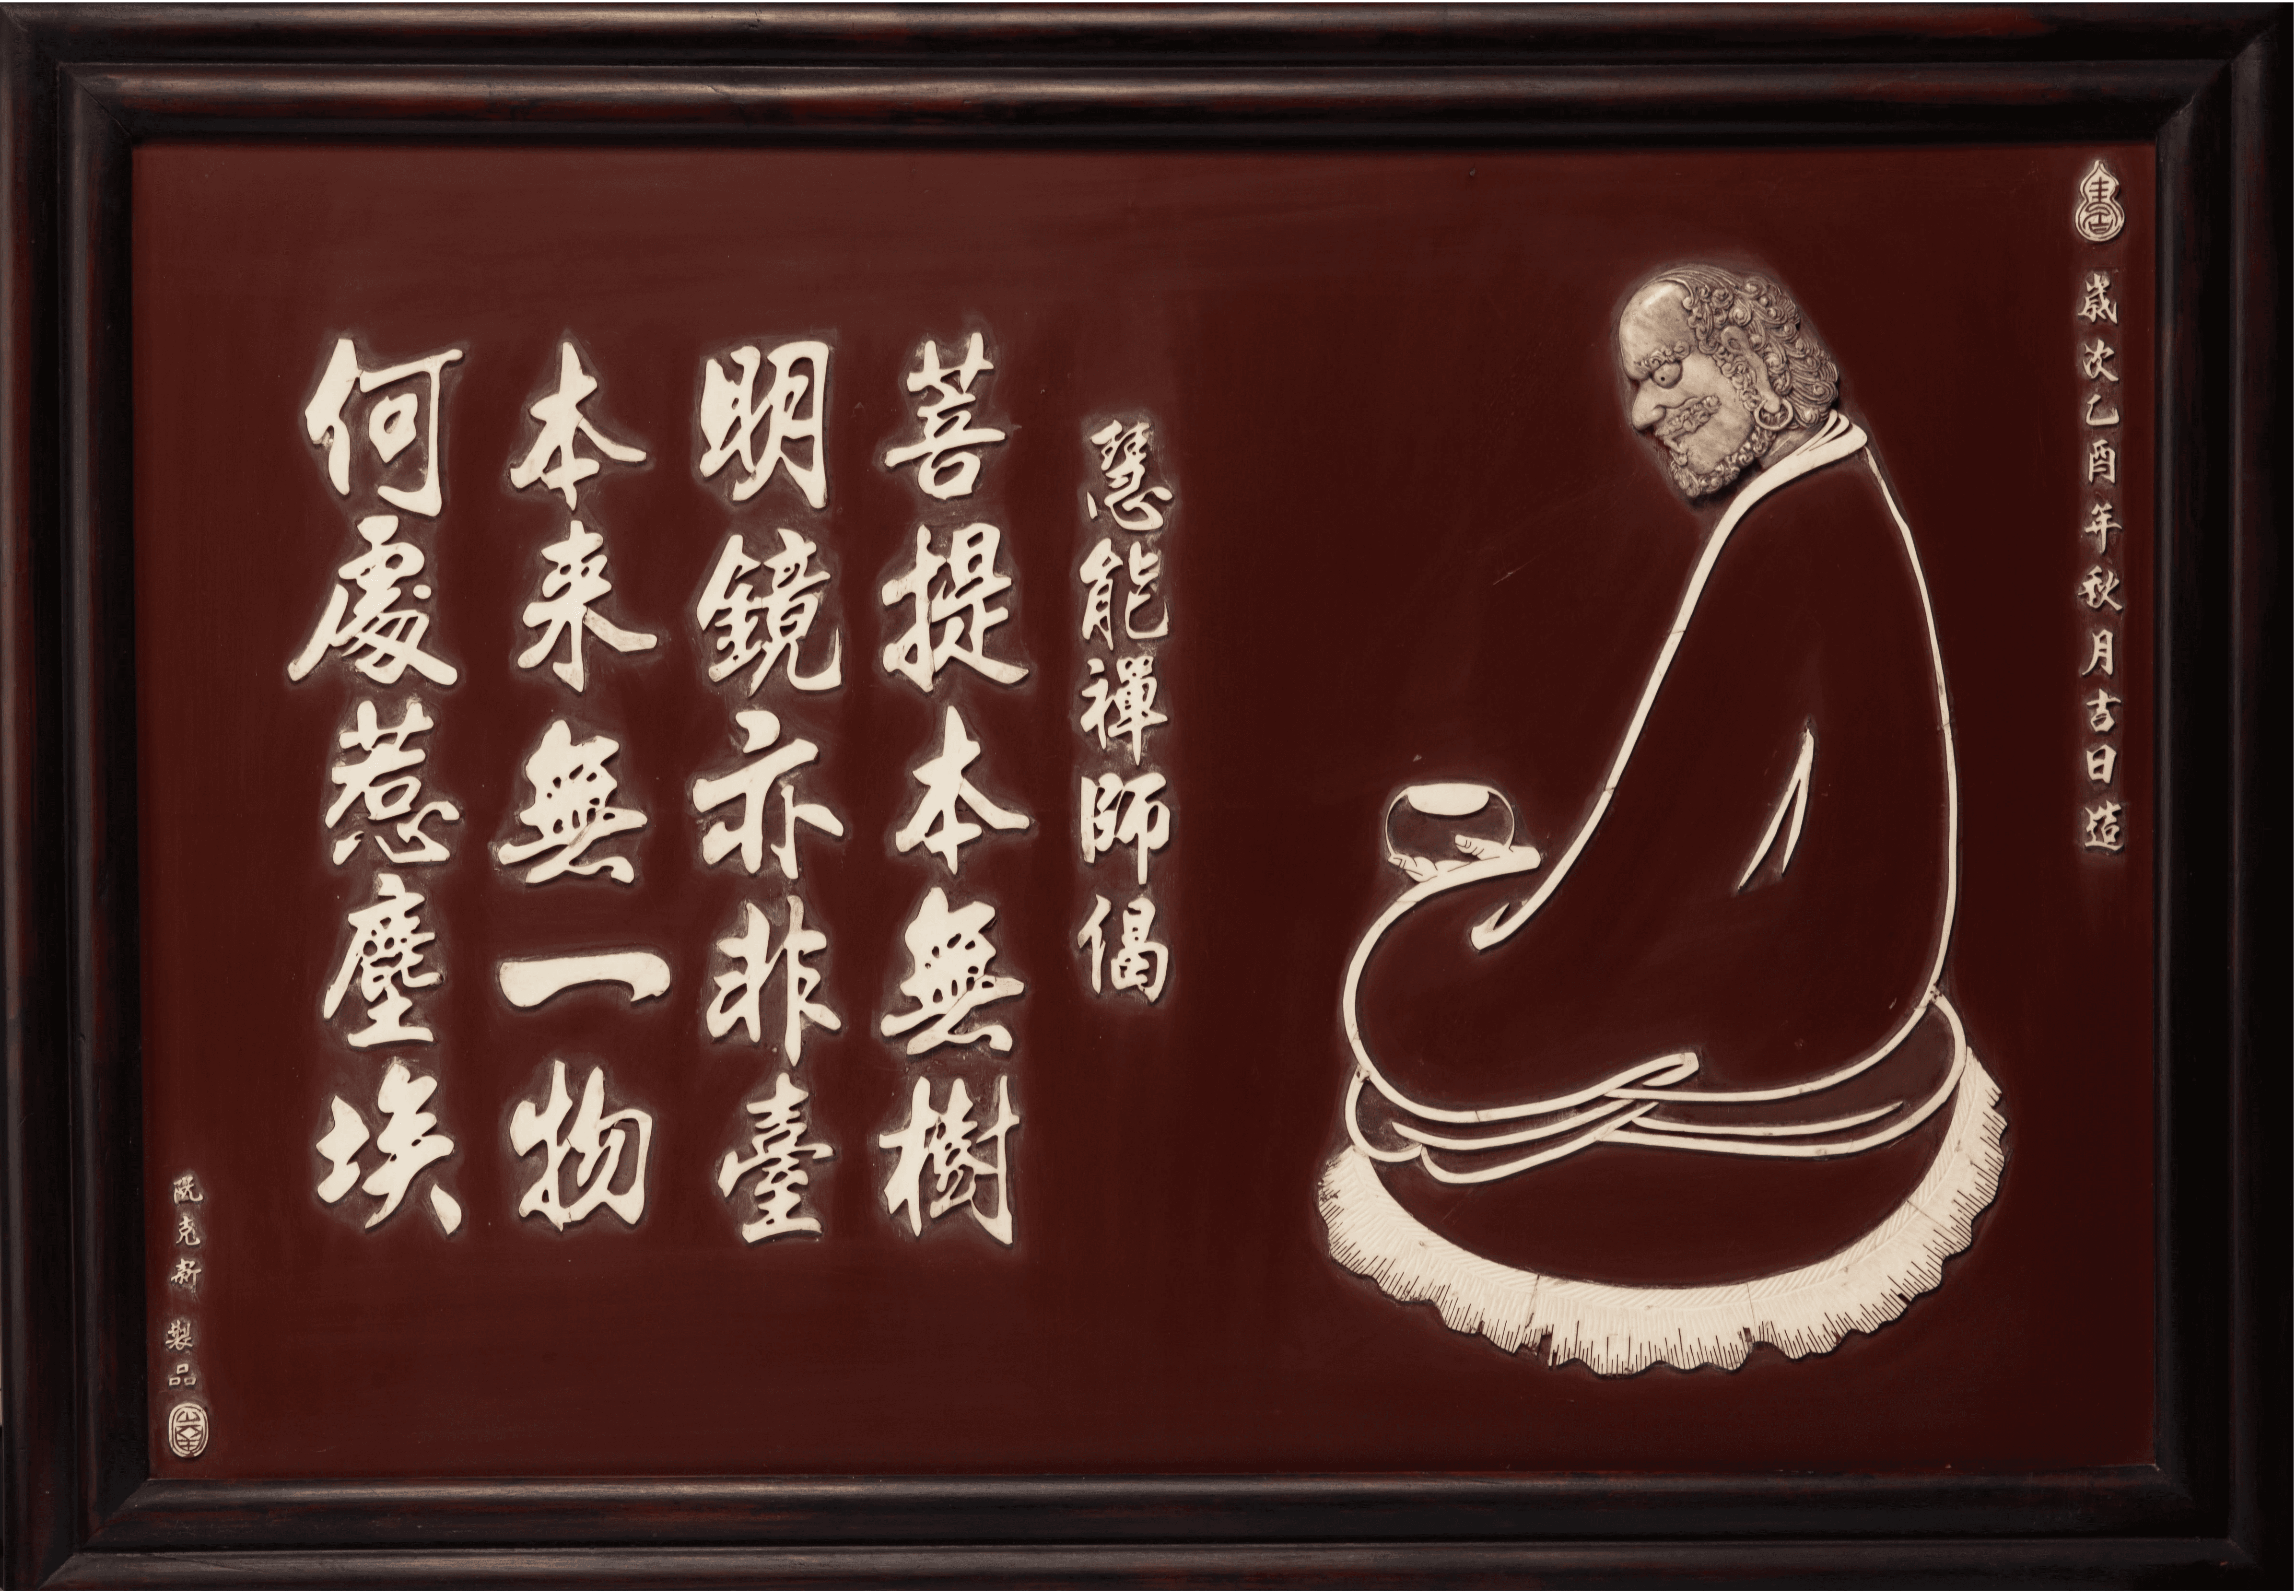 歲次乙酉年秋月吉日造
慧能禪師偈
菩提本無樹
明鏡亦非臺
本来無一物
何處惹塵埃
阮克新 製品